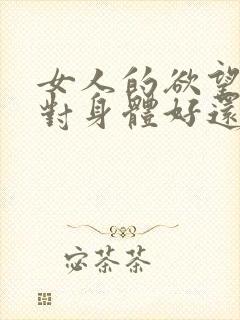 女人的欲望
對身體好還
宓茶茶